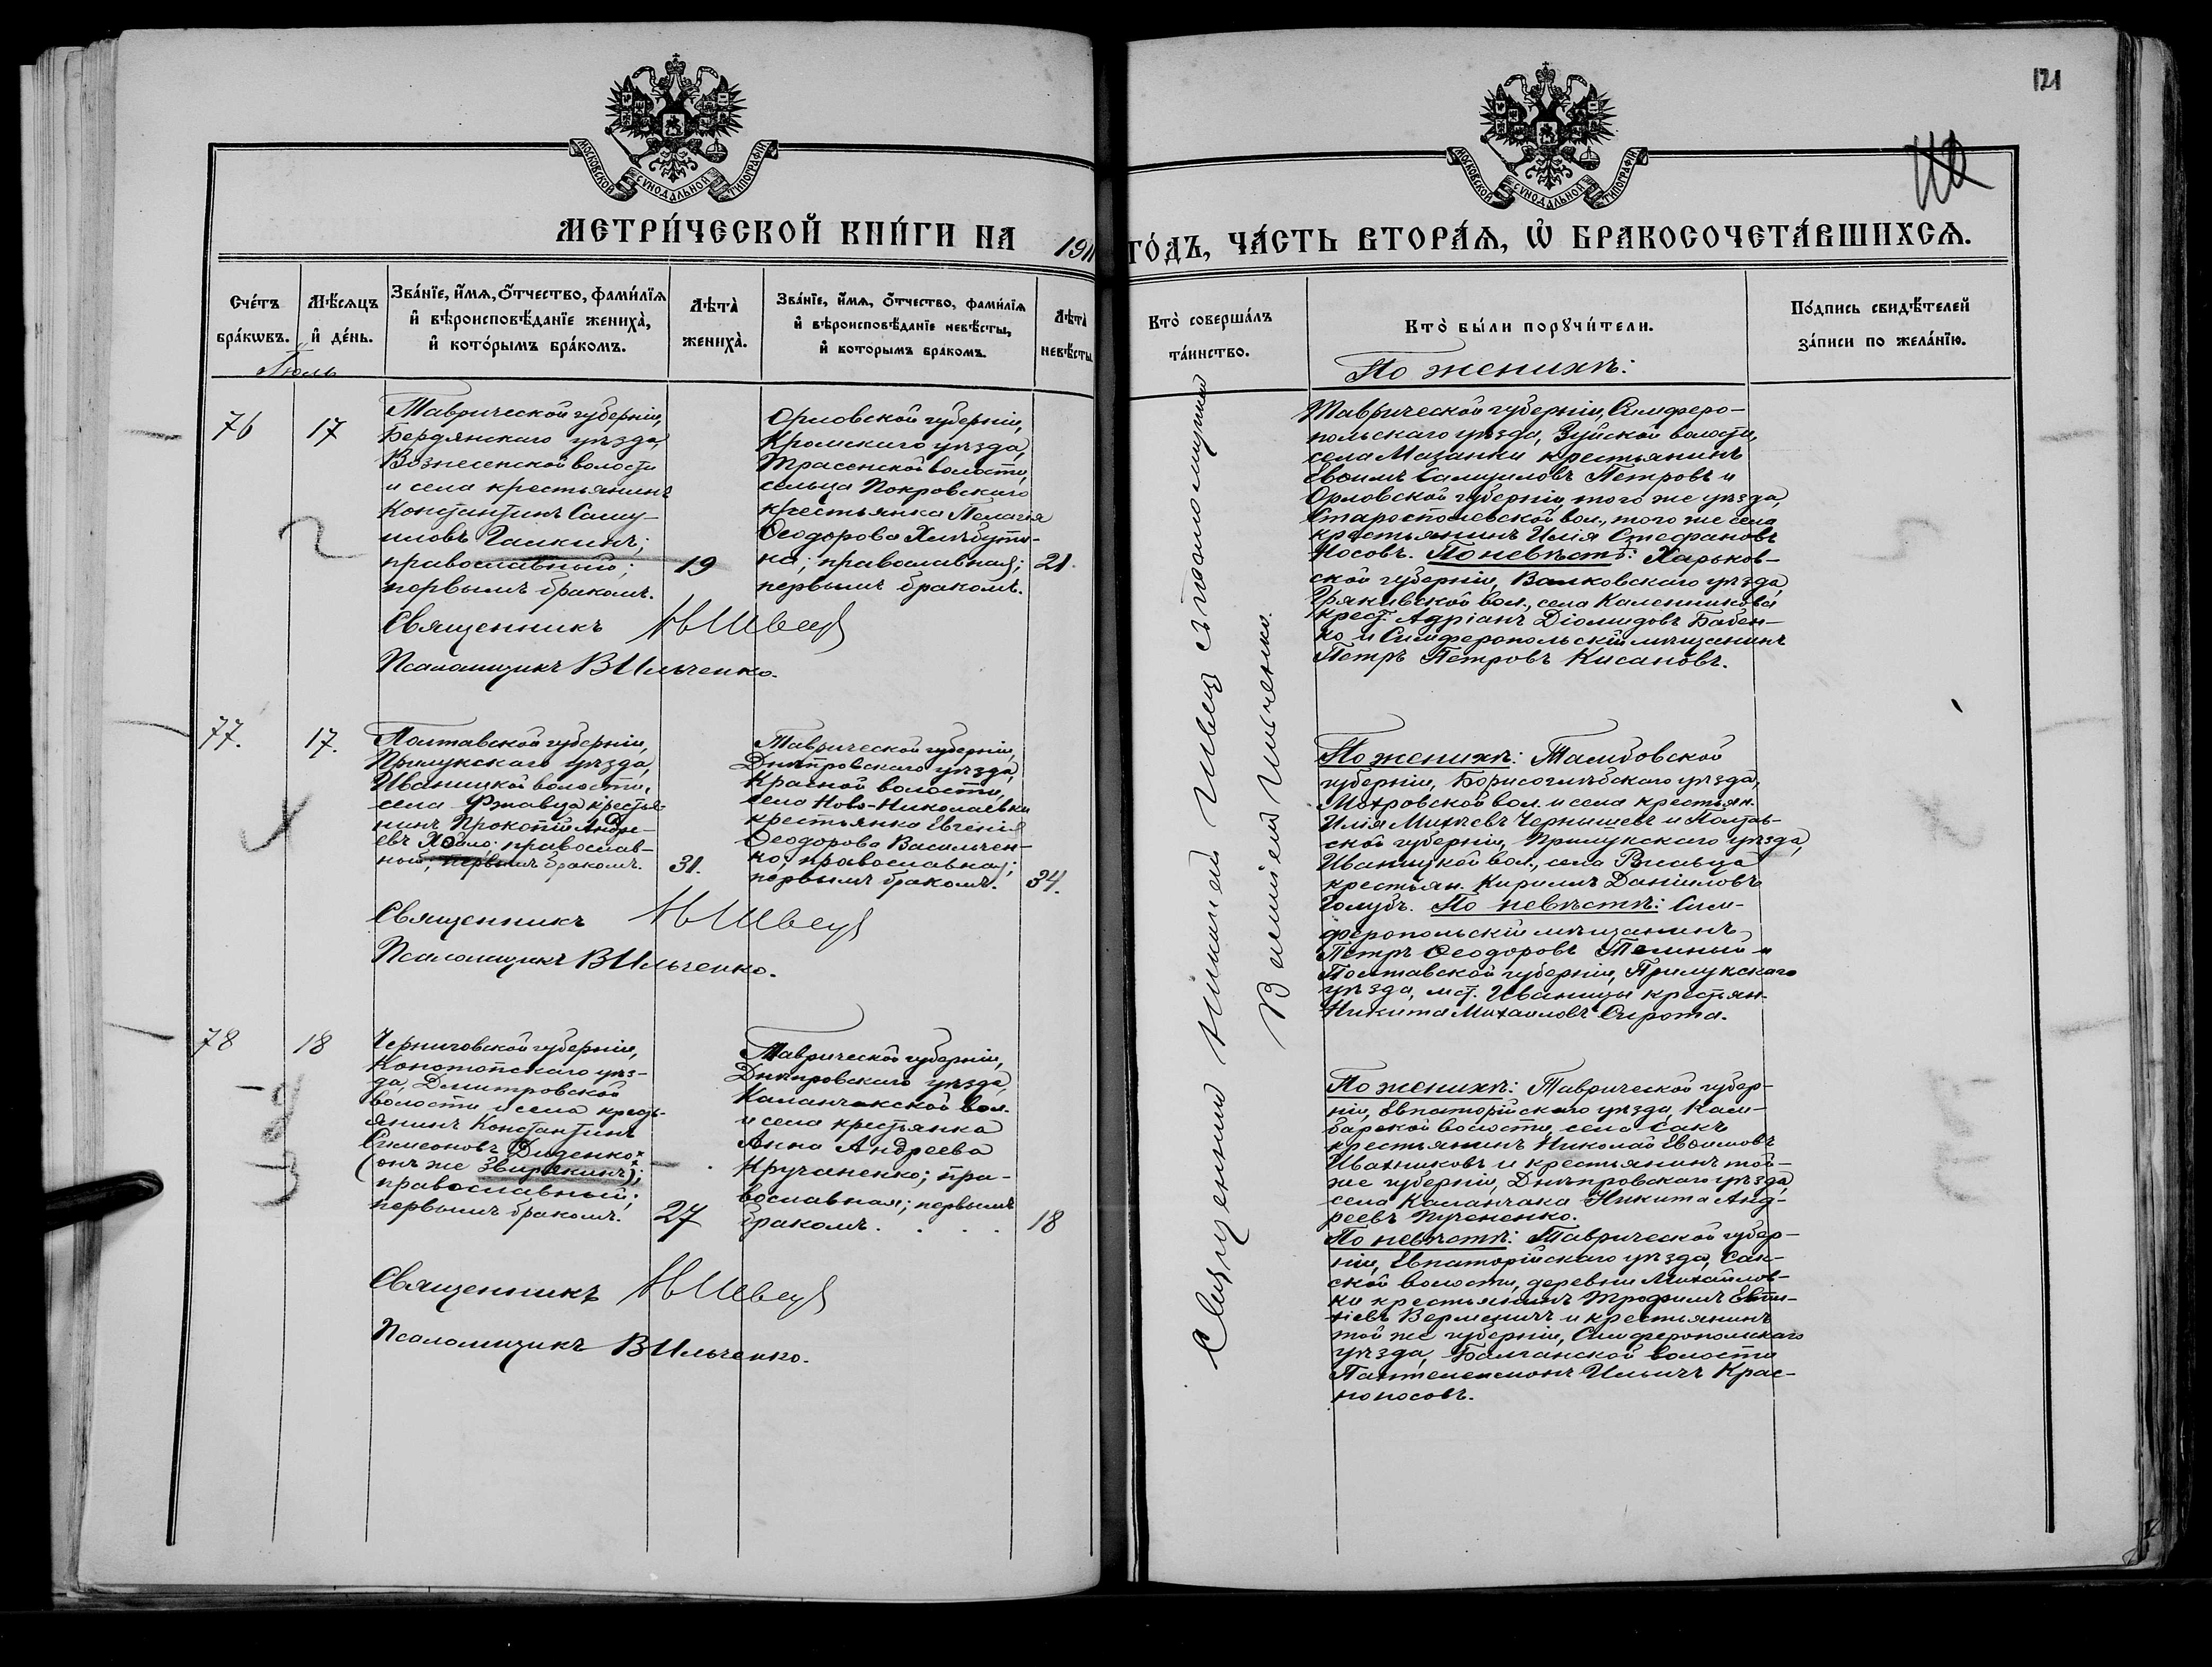 121
МОСКОВСКОЙ СУНОДАЛЬНОЙ ТИПОГРАФІИ
МОСКОВСКОЙ СУНОДАЛЬНОЙ ТИПОГРАФІИ
МЕТРИ́ЧЕСКОЙ КНИ́ГИ НА 1911 ГО́ДЪ, ЧА́СТЬ ВТОРА́Ѧ, Ѡ БРАКОСОЧЕТА́ВШИХСѦ.
Сче́тъ
бра́кѡвъ.
Мѣ́сѧцъ
и де́нь.
Зва́нїе, и́мѧ, ѻ́тчество, фами́лїѧ
и вѣроисповѣ́данїе жениха̀,
и кото́рымъ бра́комъ.
Лѣта̀
жениха̀.
Зва́нїе, и́мѧ, ѻ́тчество, фами́лїѧ
и вѣроисповѣ́данїе невѣ́сты,
и которымъ бракомъ.
Лѣта̀
невѣ́сты
Кто̀ соверша́лъ
та́инство.
Кто̀ бы́ли порꙋчи́тели.
По́дпись свидѣ́телей
за́писи по жела́нїю.
Іюль
76
17
Таврической губерніи,
Бердянскаго уѣзда,
Вознесенской волости
и села крестьянинъ
Константинъ Саму-
иловъ Галкинъ;
православный;
первымъ бракомъ.
19
Орловской губерніи,
Кромскаго уѣзда,
сельца Покровскаго
крестьянка Пелагія
Ѳеодорова Хлѣбути-
на; православная;
первымъ бракомъ.
21.
Священникъ НШвец
Псаломщикъ ВИльченко.
Священникъ Николай Швец съ псаломщикомъ
Василіемъ Ильченко.
По женихѣ:
Таврической губерніи, Симферо-
польскаго уѣзда, Зуйской волости,
села Мазанки крестьянинъ
Евѳимъ Самуиловъ Петровъ и
Орловской губерніи, того же уѣзда,
вол., того же села
крестьянинъ Илія Стефановъ
Носовъ. По невѣстѣ: Харьков-
ской губерніи, Валковскаго уѣзда,
вол., села Каленникова
крест. Адріанъ Діомидовъ Бабен-
ко и Симферопольскій мѣщанинъ
Петръ Петровъ Кисановъ.
77.
17.
Полтавской губерніи,
Прилукскаго уѣзда,
Иваницкой волости,
села Ржавца крестья-
нинъ Прокопій Андре-
евъ православ-
ный; первымъ бракомъ.
31.
Таврической губерніи,
Днѣпровскаго уѣзда,
Красной волости,
села Ново-Николаевки
крестьянка Евгенія
Ѳеодорова Васильчен-
ко; православная;
первымъ бракомъ.
34.
Священникъ НШвец
Псаломщикъ ВИльченко.
По женихѣ: Тамбовской
губерніи, Борисоглѣбскаго уѣзда,
Мохровской вол. и села крестьян.
Илія Михѣевъ Чернышевъ и Полтав-
ской губерніи, Прилукскаго уѣзда,
Иваницкой вол., села Ржавца
крестьян. Кириллъ Даніиловъ
Голубъ. По невѣстѣ: Сим-
феропольскій мѣщанинъ
Петръ Ѳеодоровъ Темный и
Полтавской губерніи, Прилукскаго
уѣзда, мѣст. Иваницы крестьян.
Никита Михаиловъ Сирота.
78
18
Черниговской губерніи,
Конотопскаго уѣз-
да, Дмитровской
волости и села кресть-
янинъ Константинъ
Симеоновъ Диденко
(онъ же Звирякинъ);
православный;
первымъ бракомъ.
27
Таврической губерніи,
Днѣпровскаго уѣзда,
Каланчакской вол.
и села крестьянка
Анна Андреева
Кручаненко; пра-
вославная; первымъ
бракомъ. . . .
18
Священникъ НШвец
Псаломщикъ ВИльченко.
По женихѣ: Таврической губер-
ніи, Евпаторійскаго уѣзда, Кам-
барской волости, села Сакъ
крестьянинъ Николай Евѳимовъ
Ивахниковъ и крестьянинъ той-
же губерніи, Днѣпровскаго уѣзда,
села Каланчака Никита Анд-
реевъ
По невѣстѣ: Таврической губер-
ніи, Евпаторійскаго уѣзда, Сак-
ской волости, деревни Михайлов-
ки крестьянинъ Трофимъ Евти-
хіевъ и крестьянинъ
той же губерніи, Симферопольскаго
уѣзда, волости
Пантелеимонъ Ильичъ Крас-
ноносовъ.